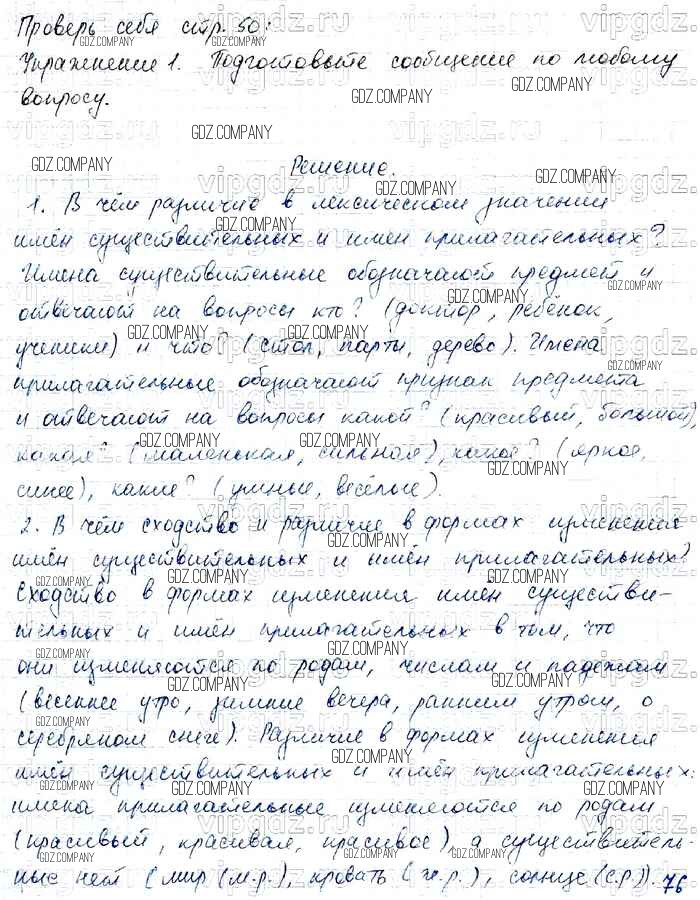 Проверь себя стр. 50:
Упражнение 1. Подготовьте сообщение по любому
вопросу.
Решение.
1. В чём различие в лексическом значении
имён существительных и имён прилагательных?
Имена существительные обозначают предмет и
отвечают на вопросы кто? (доктор, ребёнок,
ученики) и что? (стол, парты, дерево). Имена
прилагательные обозначают признак предмета
и отвечают на вопросы какой? (красивый, большой),
какая? (маленькая, сильная), какое? (яркое,
синее), какие? (умные, весёлые).
2. В чём сходство и различие в формах изменения
имён существительных и имён прилагательных?
Сходство в формах изменения имён существи-
тельных и имён прилагательных в том, что
они изменяются по родам, числам и падежам
(весеннее утро, зимние вечера, ранним утром, о
серебряном снеге). Различие в формах изменения
имён существительных и имён прилагательных:
имена прилагательные изменяются по родам
(красивый, красивая, красивое), а существитель-
ные нет (мир (м.р.), кровать (ж.р.), солнце (с.р.)). 76
GDZ.COMPANY
vipgdz.ru